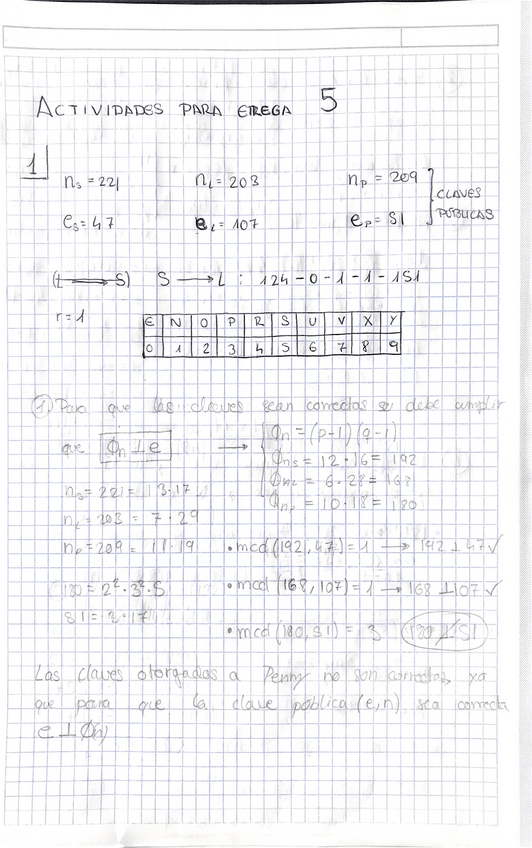 ACTIVIDADES PARA ETREGA 5
1
n_s = 221 n_L = 203 n_p = 209
e_s = 47 e_L = 107 e_p = 51 CLAVES PÚBLICAS
(L ⟹ S) S ⟶ L : 124 - 0 - 1 - 1 - 151
r = 1
E N O P R S U V X Y
0 1 2 3 4 5 6 7 8 9
① Para que las claves sean correctas se debe cumplir
que Φn ⊥ e ⟶ Φn = (p-1)(q-1)
Φn_s = 12·16 = 192
Φn_L = 6·28 = 168
Φn_p = 10·18 = 180
n_s = 221 = 13·17
n_L = 203 = 7·29
n_p = 209 = 11·19 • mcd (192, 47) = 1 ⟶ 192 ⊥ 47 ✓
180 = 2²·3²·5 • mcd (168, 107) = 1 ⟶ 168 ⊥ 107 ✓
51 = 3·17
• mcd (180, 51) = 3 180 ⊥̸ 51
Las claves otorgadas a Penny no son correctas, ya
que para que la clave pública (e, n) sea correcta
e ⊥ Φ(n)